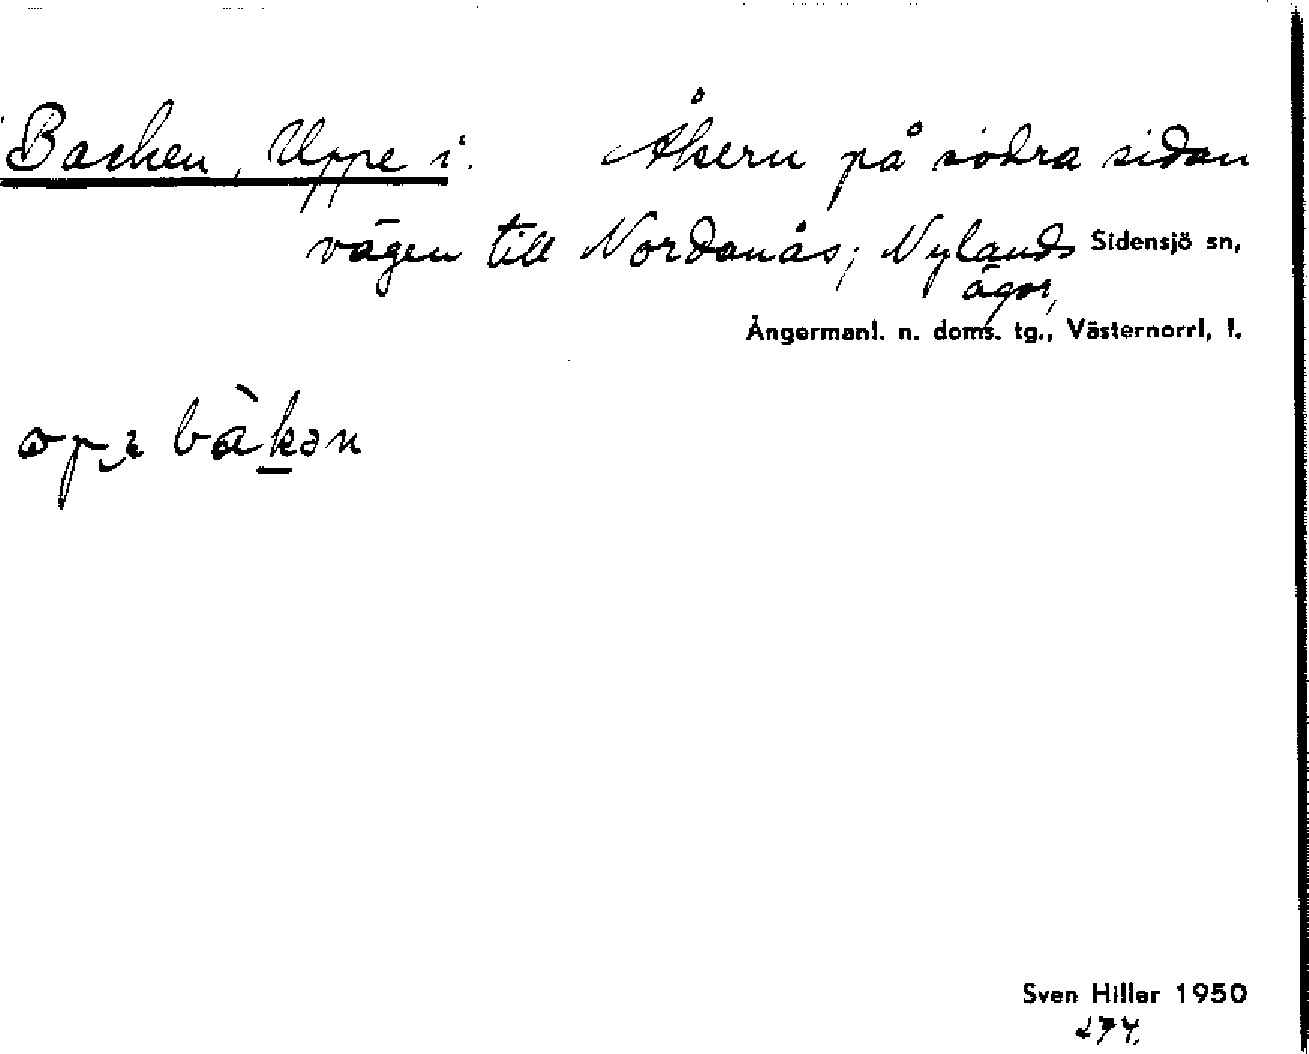 Backen, Uppe i. Åkern på södra sidan
vägen till Nordanås, Nylands Sidensjö sn,
ägor,
Ångermanl. n. doms. tg., Västernorrl. l.
bàkən
Sven Hiller 1950
274.